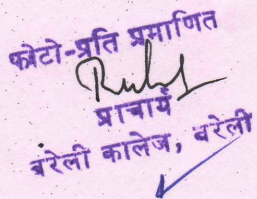 फोटो-प्रति प्रमाणित
प्राचार्य
बरेली कालेज, बरेली